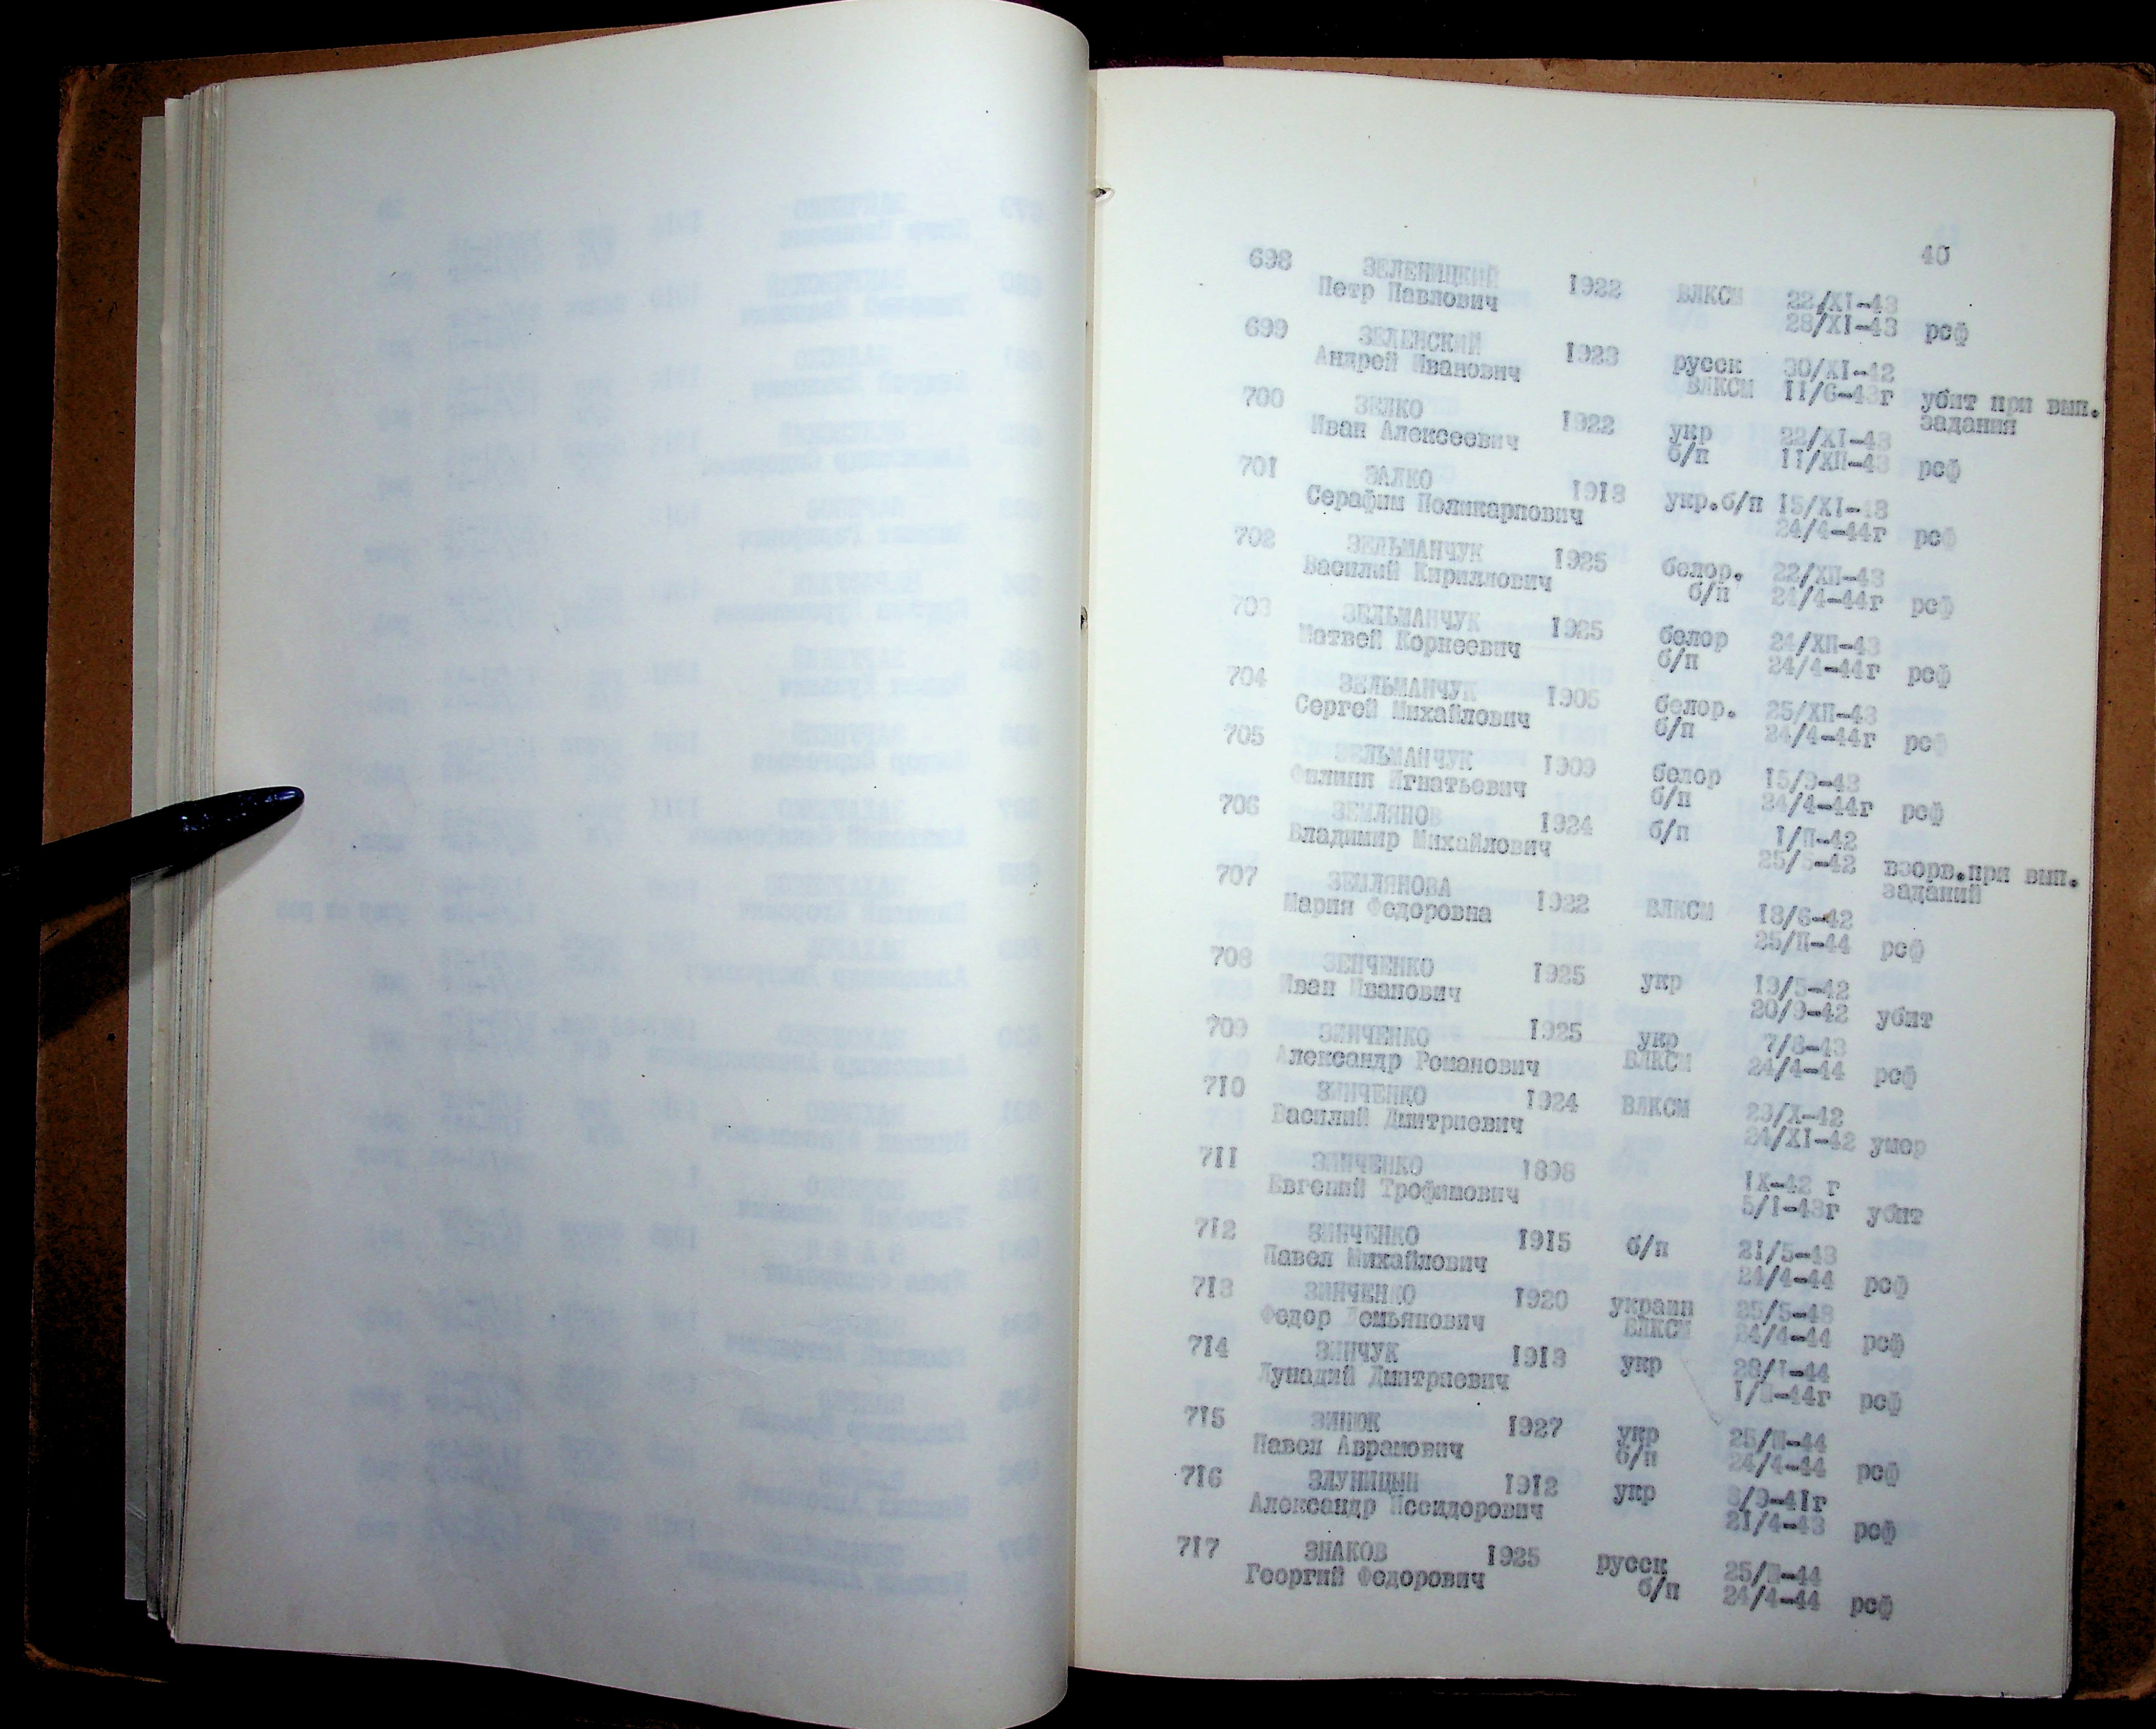 40
698 ЗЕЛЕНИЦКИЙ 1922 ВЛКСМ 22/XI-43
Петр Павлович 28/XI-43 рсф
699 ЗЕЛЕНСКИЙ 1923 русск 30/XI-42
Андрей Иванович ВЛКСМ II/6-43г убит при вып.
задания
700 ЗЕЛКО 1922 укр 22/XI-43
Иван Алексеевич б/п II/ХП-43 рсф
701 ЗАЛКО 1913 укр.б/п 15/XI-43
Серафим Поликарпович 24/4-44г рсф
702 ЗЕЛЬМАНЧУК 1925 белор. 22/ХП-43
Василий Кириллович б/п 24/4-44г рсф
703 ЗЕЛЬМАНЧУК 1925 белор 24/ХП-43
Матвей Корнеевич б/п 24/4-44г рсф
704 ЗЕЛЬМАНЧУК 1905 белор. 25/ХП-43
Сергей Михайлович б/п 24/4-44г рсф
705 ЗЕЛЬМАНЧУК 1909 белор 15/9-43
Филипп Игнатьевич б/п 24/4-44г рсф
706 ЗЕМЛЯНОВ 1924 б/п I/П-42
Владимир Михайлович 25/5-42 взорв.при вып.
заданий
707 ЗЕМЛЯНОВА 1922 ВЛКСМ 18/6-42
Мария Федоровна 25/П-44 рсф
708 ЗЕНЧЕНКО 1925 укр 19/5-42
Иван Иванович 20/9-42 убит
709 ЗИНЧЕНКО 1925 укр 7/8-43
Александр Романович ВЛКСМ 24/4-44 рсф
710 ЗИНЧЕНКО 1924 ВЛКСМ 29/X-42
Василий Дмитриевич 24/XI-42 умер
711 ЗИНЧЕНКО 1898 IX-42 г
Евгений Трофимович 5/I-43г убит
712 ЗИНЧЕНКО 1915 б/п 21/5-43
Павел Михайлович 24/4-44 рсф
713 ЗИНЧЕНКО 1920 украин 25/5-43
Федор Демьянович ВЛКСМ 24/4-44 рсф
714 ЗИНЧУК 1913 укр 28/I-44
Лунадий Дмитриевич рсф
715 ЗИНЮК 1927 укр 25/Ш-44
Павел Аврамович б/п 24/4-44 рсф
716 ЗЛУНИЦЫН 1912 укр
Александр Иссидорович 21/4-43 рсф
717 ЗНАКОВ 1925 русск 25/Ш-44
Георгий Федорович б/п 24/4-44 рсф